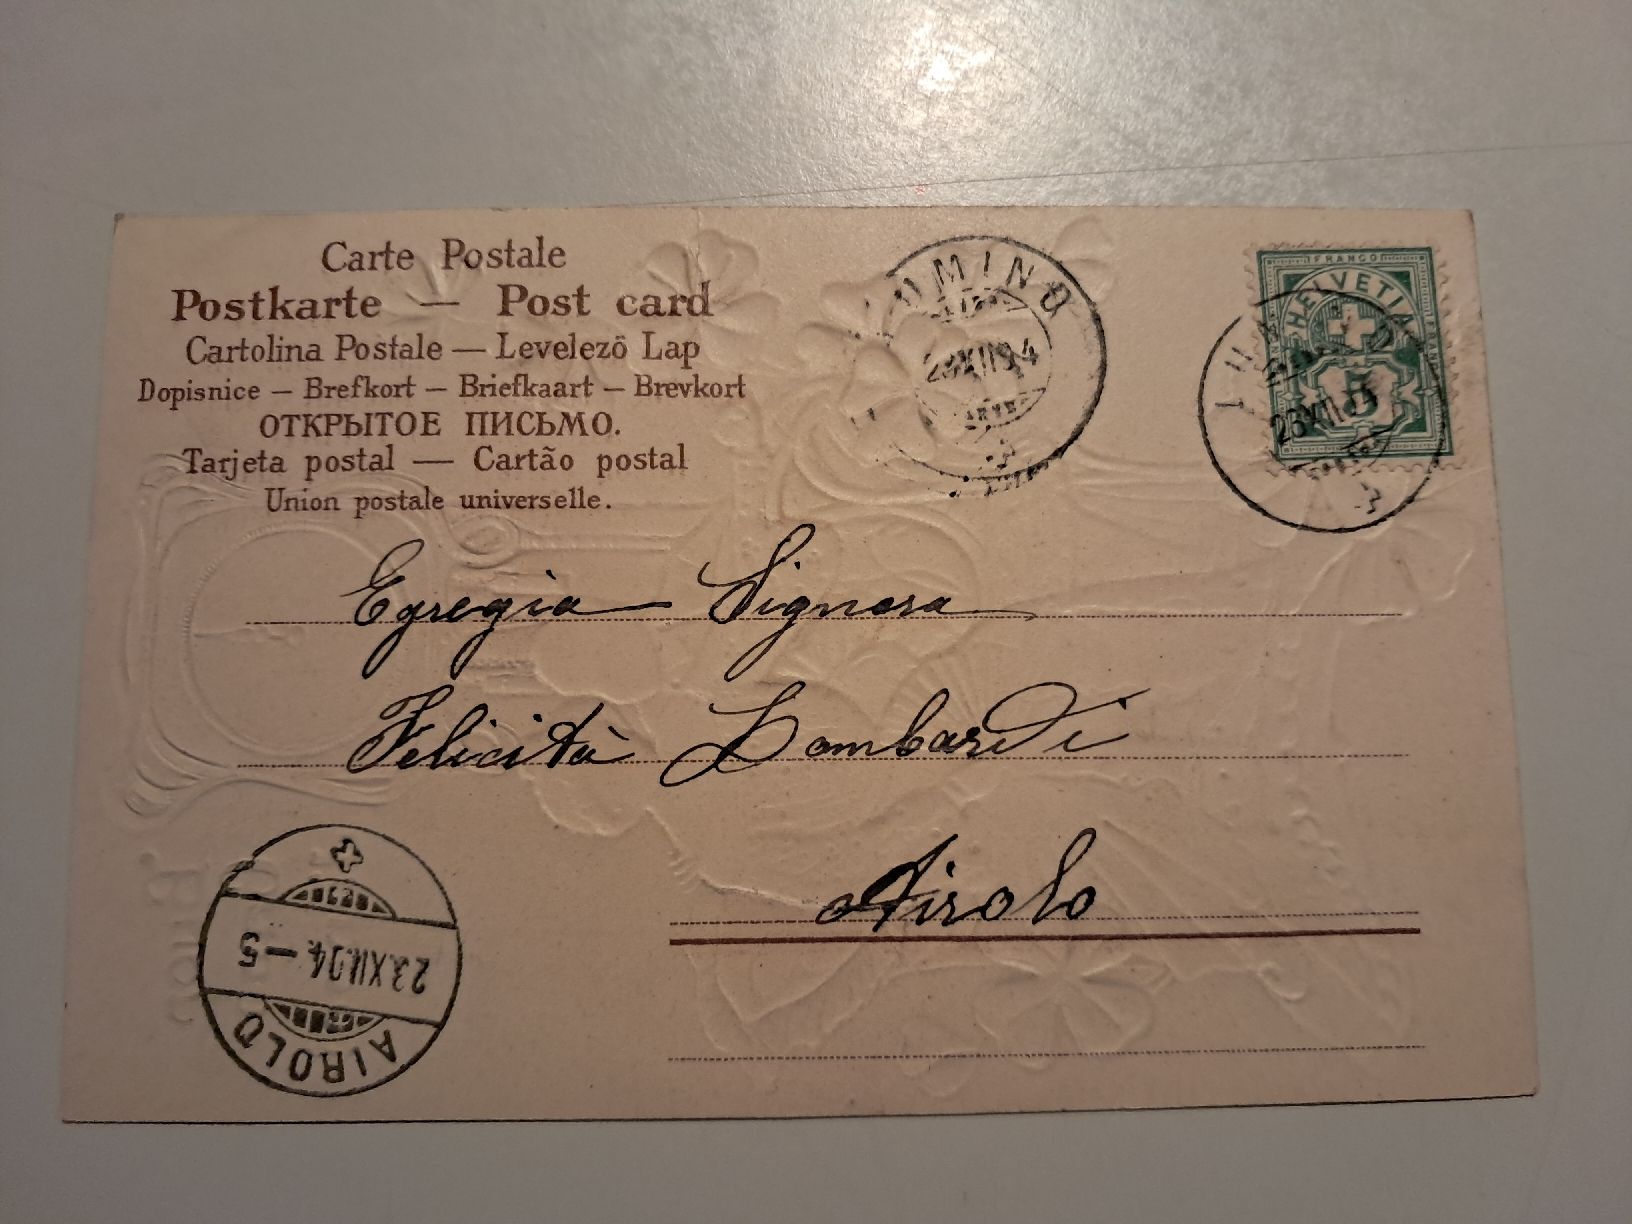 Carte Postale
Postkarte — Post card
Cartolina Postale — Levelezö Lap
Dopisnice — Brefkort — Briefkaart — Brevkort
ОТКРЫТОЕ ПИСЬМО.
Tarjeta postal — Cartão postal
Union postale universelle.
LUMINO
23 XII 04
FRANCO
HELVETIA
5
23 XII 04
Egregia Signora
Felicità Lombardi
Airolo
AIROLO
23.XII.04.–5